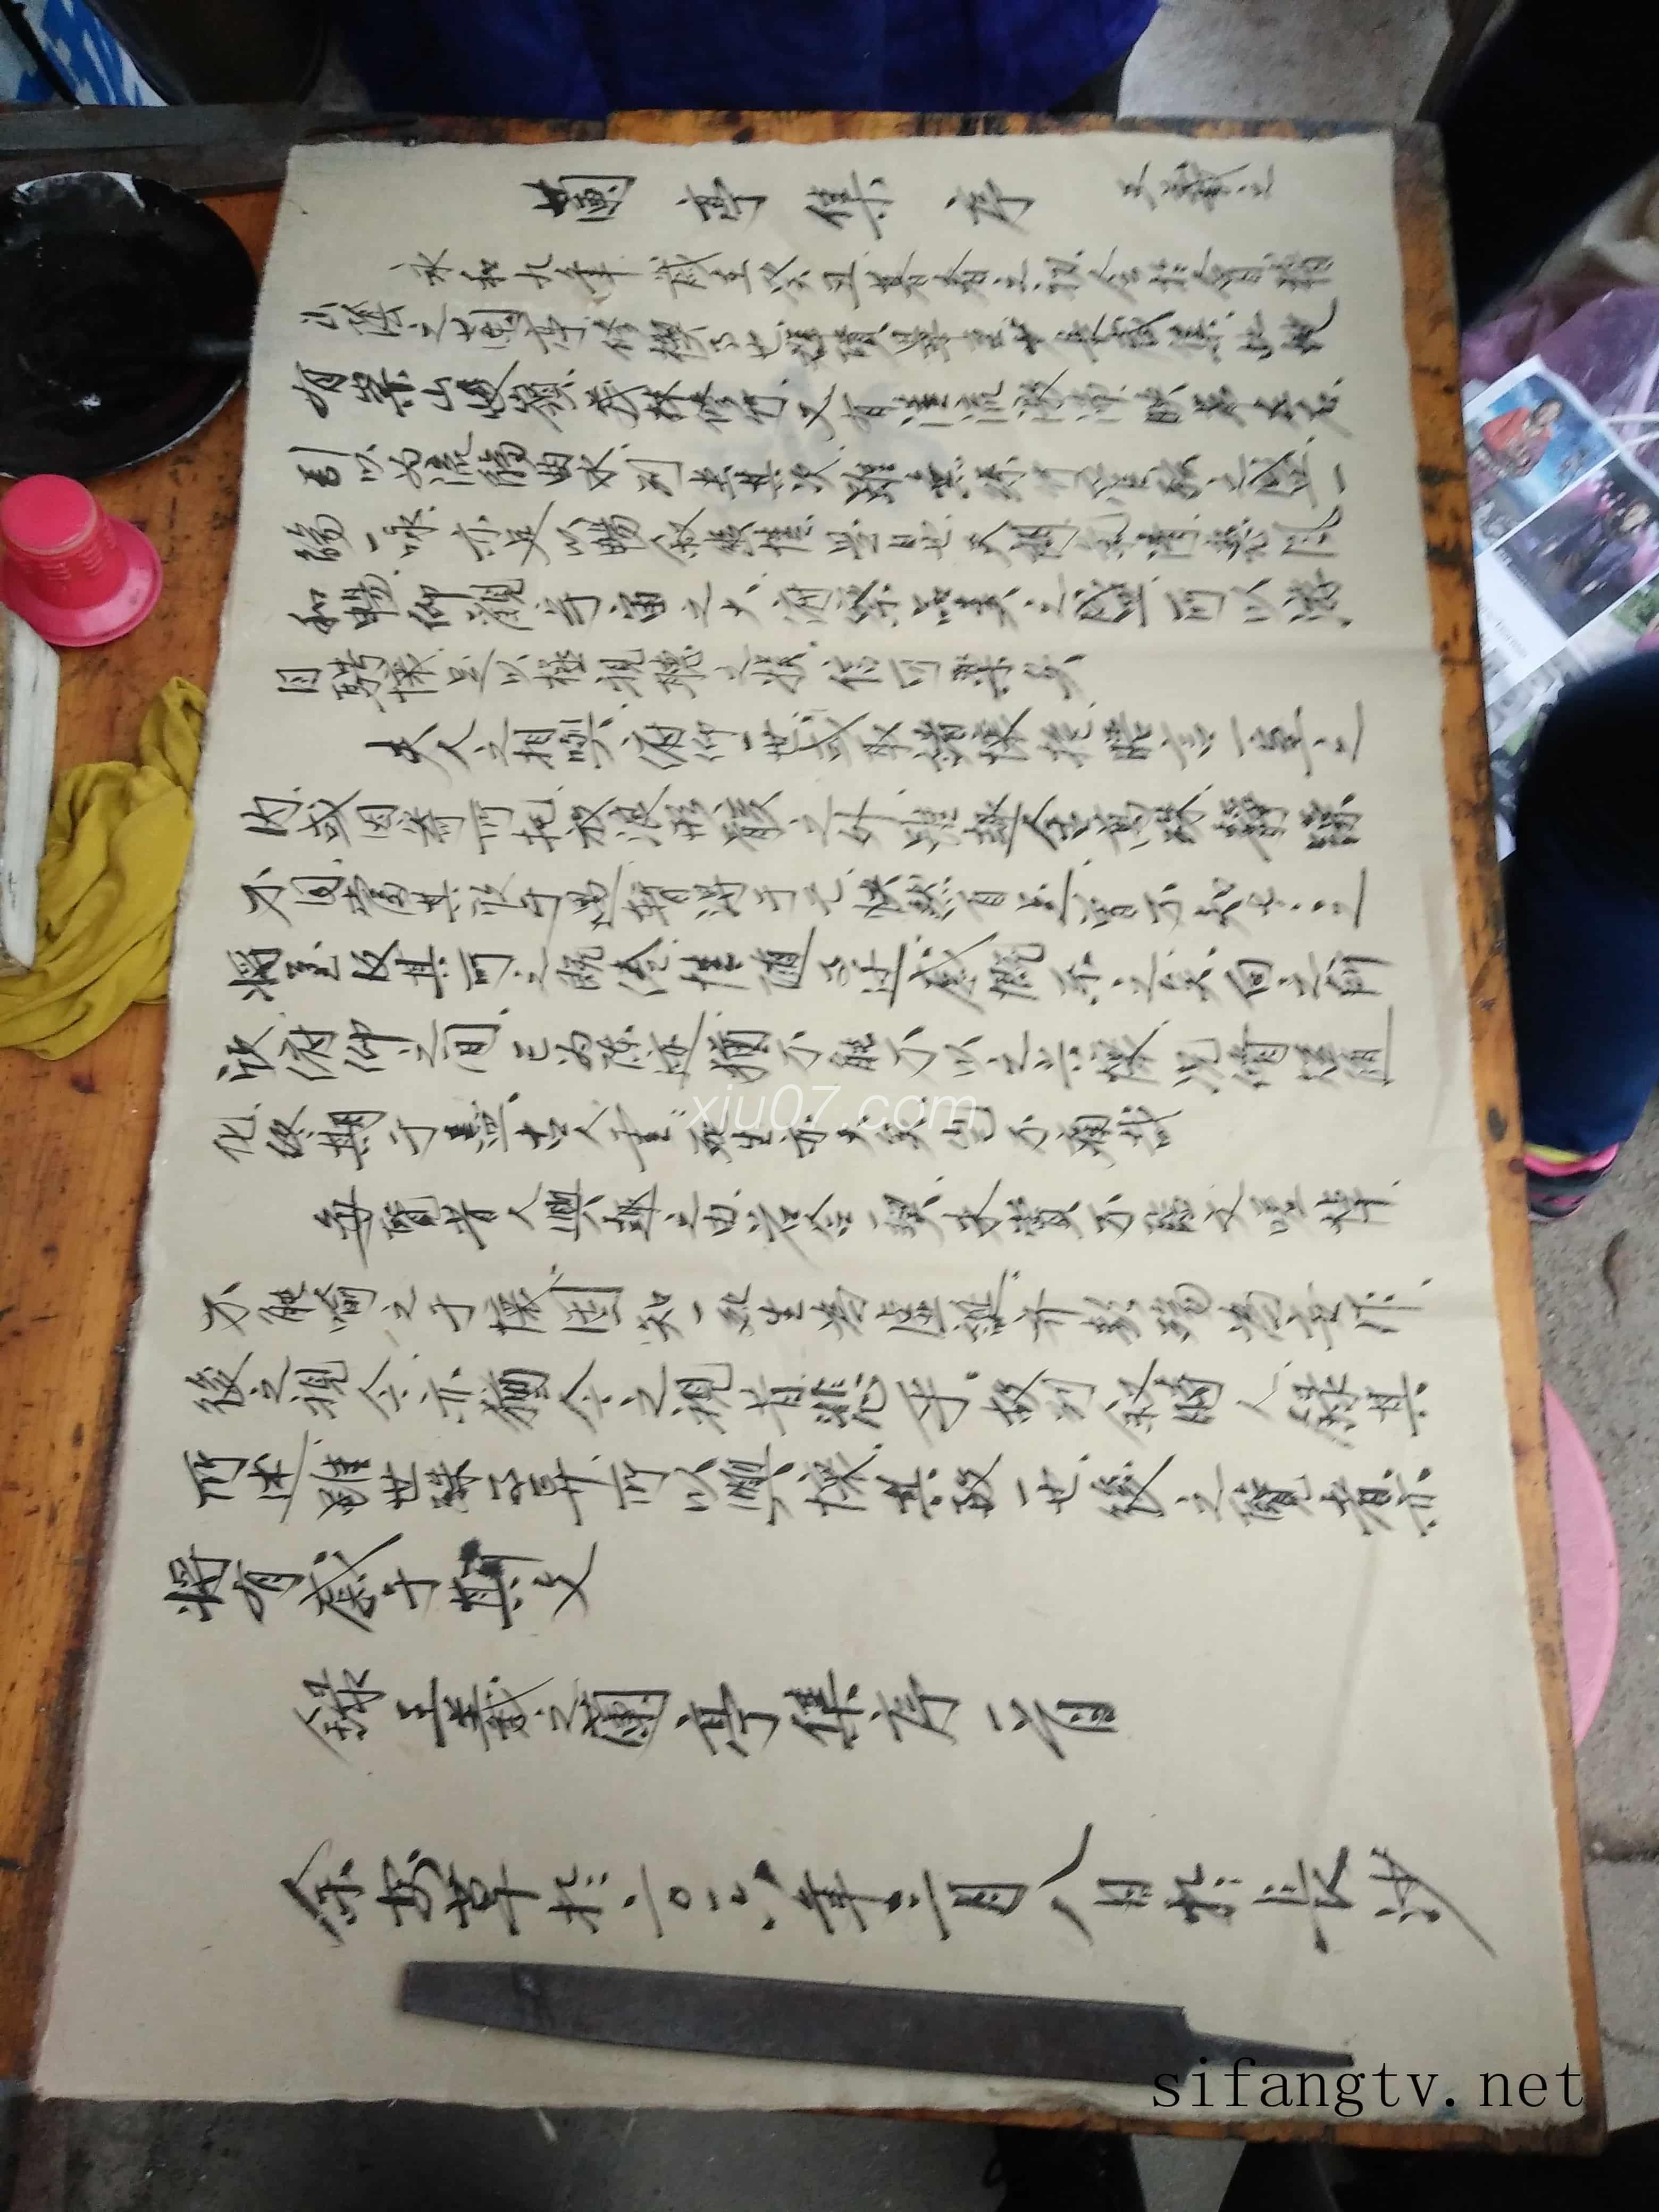 蘭亭集序 王羲之
永和九年歲在癸丑暮春之初會於會稽
山陰之蘭亭修禊事也群賢畢至少長咸集此地
有崇山峻嶺茂林修竹又有清流激湍映帶左右
引以為流觴曲水列坐其次雖無絲竹管弦之盛一
觴一詠亦足以暢敘幽情是日也天朗氣清惠風
和暢仰觀宇宙之大俯察品類之盛所以遊
目騁懷足以極視聽之娛信可樂也
夫人之相與俯仰一世或取諸懷抱悟言一室之
內或因寄所託放浪形骸之外雖趣舍萬殊靜躁
不同當其欣於所遇暫得於己快然自足曾不知老之
將至及其所之既倦情隨事遷感慨系之矣向之所
欣俯仰之間已為陳迹猶不能不以之興懷況修短隨
化終期于盡古人云死生亦大矣豈不痛哉
每覽昔人興感之由若合一契未嘗不臨文嗟悼
不能喻之于懷固知一死生為虛誕齊彭殤為妄作
後之視今亦猶今之視昔悲夫故列敘時人錄其
所述雖世殊事異所以興懷其致一也後之覽者亦
將有感于斯文
錄王羲之蘭亭集序一首
於二〇一六年三月八日於長沙
xju07.com
sifangtv.net